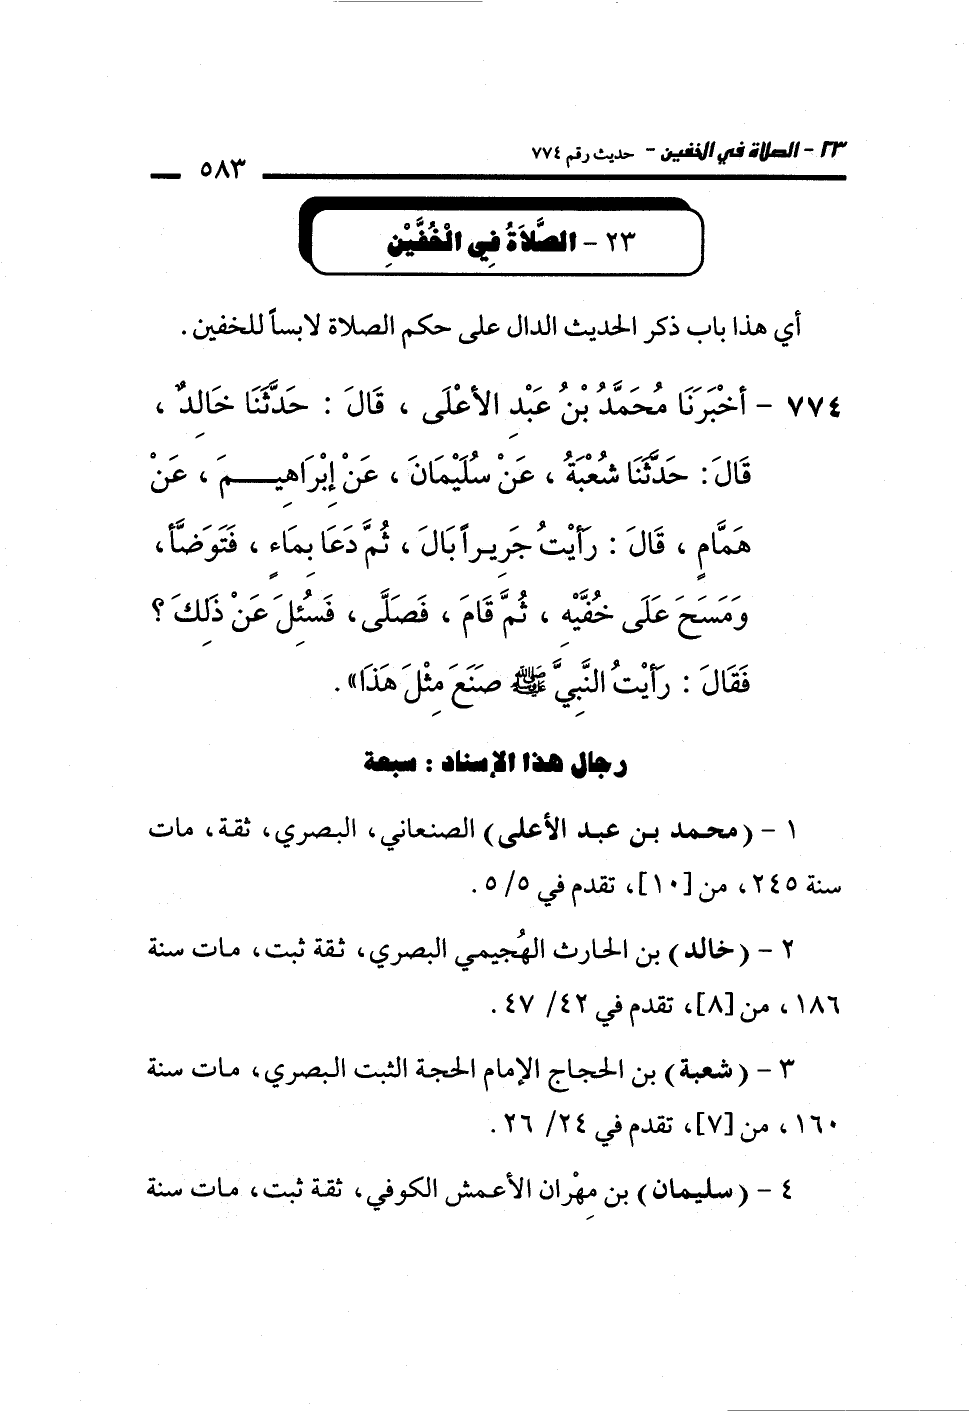 ٢٣ - الصلاة في الخفين - حديث رقم ٧٧٤
٥٨٣
٢٣ - الصَّلاَةُ فِي الْخُفَّيْنِ
أي هذا باب ذكر الحديث الدال على حكم الصلاة لابساً للخفين .
٧٧٤ - أخْبَرَنَا مُحَمَّدُ بْنُ عَبْدِ الأعْلَى ، قَالَ : حَدَّثَنَا خَالِدٌ ،
قَالَ : حَدَّثَنَا شُعْبَةُ ، عَنْ سُلَيْمَانَ ، عَنْ إِبْرَاهِيمَ ، عَنْ
هَمَّامٍ ، قَالَ : رَأَيْتُ جَرِيراً بَالَ ، ثُمَّ دَعَا بِمَاءٍ ، فَتَوَضَّأَ ،
وَمَسَحَ عَلَى خُفَّيْهِ ، ثُمَّ قَامَ ، فَصَلَّى ، فَسُئِلَ عَنْ ذَلِكَ ؟
فَقَالَ : رَأَيْتُ النَّبِيَّ ﷺ صَنَعَ مِثْلَ هَذَا» .
رجال هذا الإسناد : سبعة
١ - (محمد بن عبد الأعلى) الصنعاني، البصري، ثقة، مات
سنة ٢٤٥، من [١٠]، تقدم في ٥/ ٥ .
٢ - (خالد) بن الحارث الهُجيمي البصري، ثقة ثبت، مات سنة
١٨٦، من [٨]، تقدم في ٤٢/ ٤٧ .
٣ - (شعبة) بن الحجاج الإمام الحجة الثبت البصري، مات سنة
١٦٠، من [٧]، تقدم في ٢٤/ ٢٦ .
٤ - (سليمان) بن مِهْران الأعمش الكوفي، ثقة ثبت، مات سنة